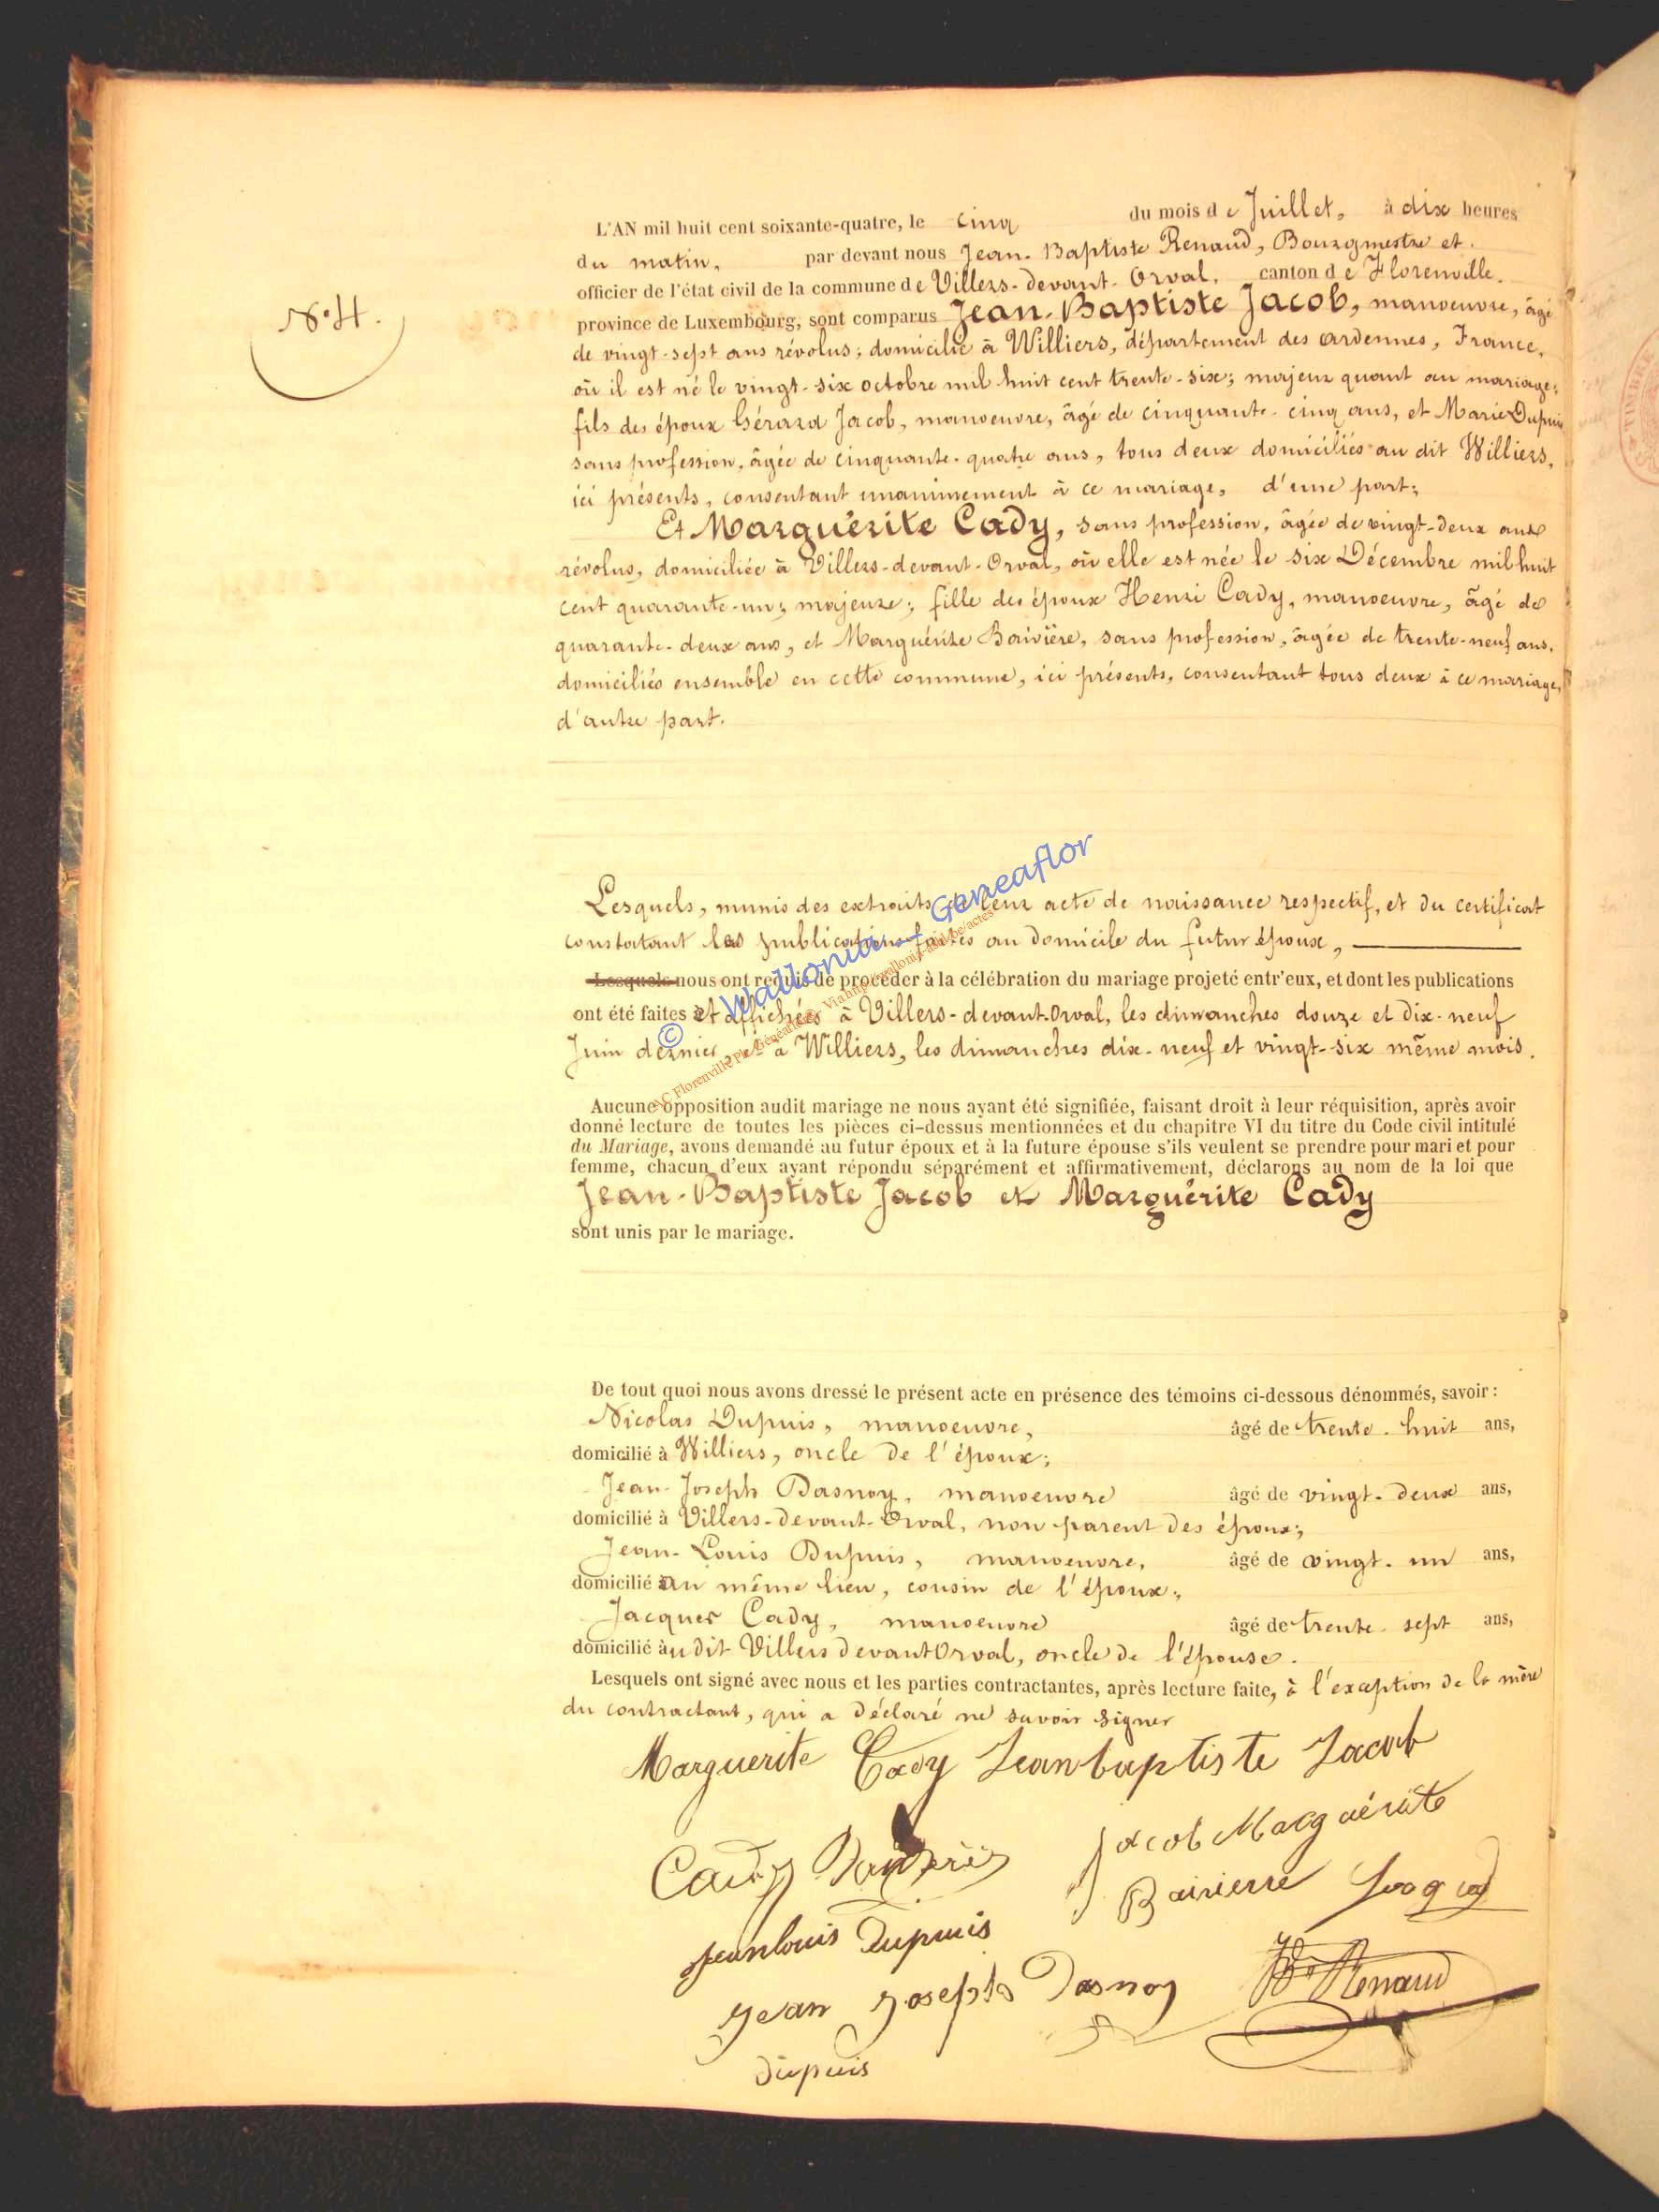 N° 4.
L'AN mil huit cent soixante-quatre, le cinq du mois de Juillet, à dix heures
du matin, par devant nous Jean-Baptiste Renaud, Bourgmestre et
officier de l'état civil de la commune de Villers-devant-Orval, canton de Florenville,
province de Luxembourg, sont comparus Jean-Baptiste Jacob, manoeuvre, âgé
de vingt-sept ans révolus; domicilié à Williers, département des ardennes, France,
où il est né le vingt-six octobre mil huit cent trente-six; majeur quant au mariage;
fils des époux Gérard Jacob, manoeuvre, âgé de cinquante-cinq ans, et Marie Dupuis
sans profession, âgée de cinquante-quatre ans, tous deux domiciliés au dit Williers,
ici présents, consentant unanimement à ce mariage, d'une part;
Et Marguérite Cady, sans profession, âgée de vingt-deux ans
révolus, domiciliée à Villers-devant-Orval, où elle est née le six Décembre mil huit
cent quarante-un; majeure; fille des époux Henri Cady, manoeuvre, âgé de
quarante-deux ans, et Marguérite Baivière, sans profession, âgée de trente-neuf ans,
domiciliés ensemble en cette commune, ici présents, consentant tous deux à ce mariage,
d'autre part.
Lesquels, munis des extraits de leur acte de naissance respectif, et du certificat
constatant les publications faites au domicile du futur époux,
Lesquels nous ont requis de procéder à la célébration du mariage projeté entr'eux, et dont les publications
ont été faites et affichées à Villers-devant-Orval, les dimanches douze et dix-neuf
Juin dernier, et à Williers, les dimanches dix-neuf et vingt-six même mois.
Aucune opposition audit mariage ne nous ayant été signifiée, faisant droit à leur réquisition, après avoir
donné lecture de toutes les pièces ci-dessus mentionnées et du chapitre VI du titre du Code civil intitulé
du Mariage, avons demandé au futur époux et à la future épouse s'ils veulent se prendre pour mari et pour
femme, chacun d'eux ayant répondu séparément et affirmativement, déclarons au nom de la loi que
Jean-Baptiste Jacob et Marguérite Cady
sont unis par le mariage.
De tout quoi nous avons dressé le présent acte en présence des témoins ci-dessous dénommés, savoir :
Nicolas Dupuis, manoeuvre, âgé de trente-huit ans,
domicilié à Williers, oncle de l'époux;
Jean-Joseph Dasnoy, manoeuvre âgé de vingt-deux ans,
domicilié à Villers-devant-Orval, non parent des époux;
Jean-Louis Dupuis, manoeuvre, âgé de vingt-un ans,
domicilié au même lieu, cousin de l'époux;
Jacques Cady, manoeuvre âgé de trente-sept ans,
domicilié àu dit Villers devant Orval, oncle de l'épouse.
Lesquels ont signé avec nous et les parties contractantes, après lecture faite, à l'exception de la mère
du contractant, qui a déclaré ne savoir signer
Marguerite Cady Jeanbaptiste Jacob
Cady Jacob Marguérite
Bairierre
jeanlouis Dupuis
jean joseph Dasnoy JBte Renaud
dupuis
© Wallonia - Geneaflor